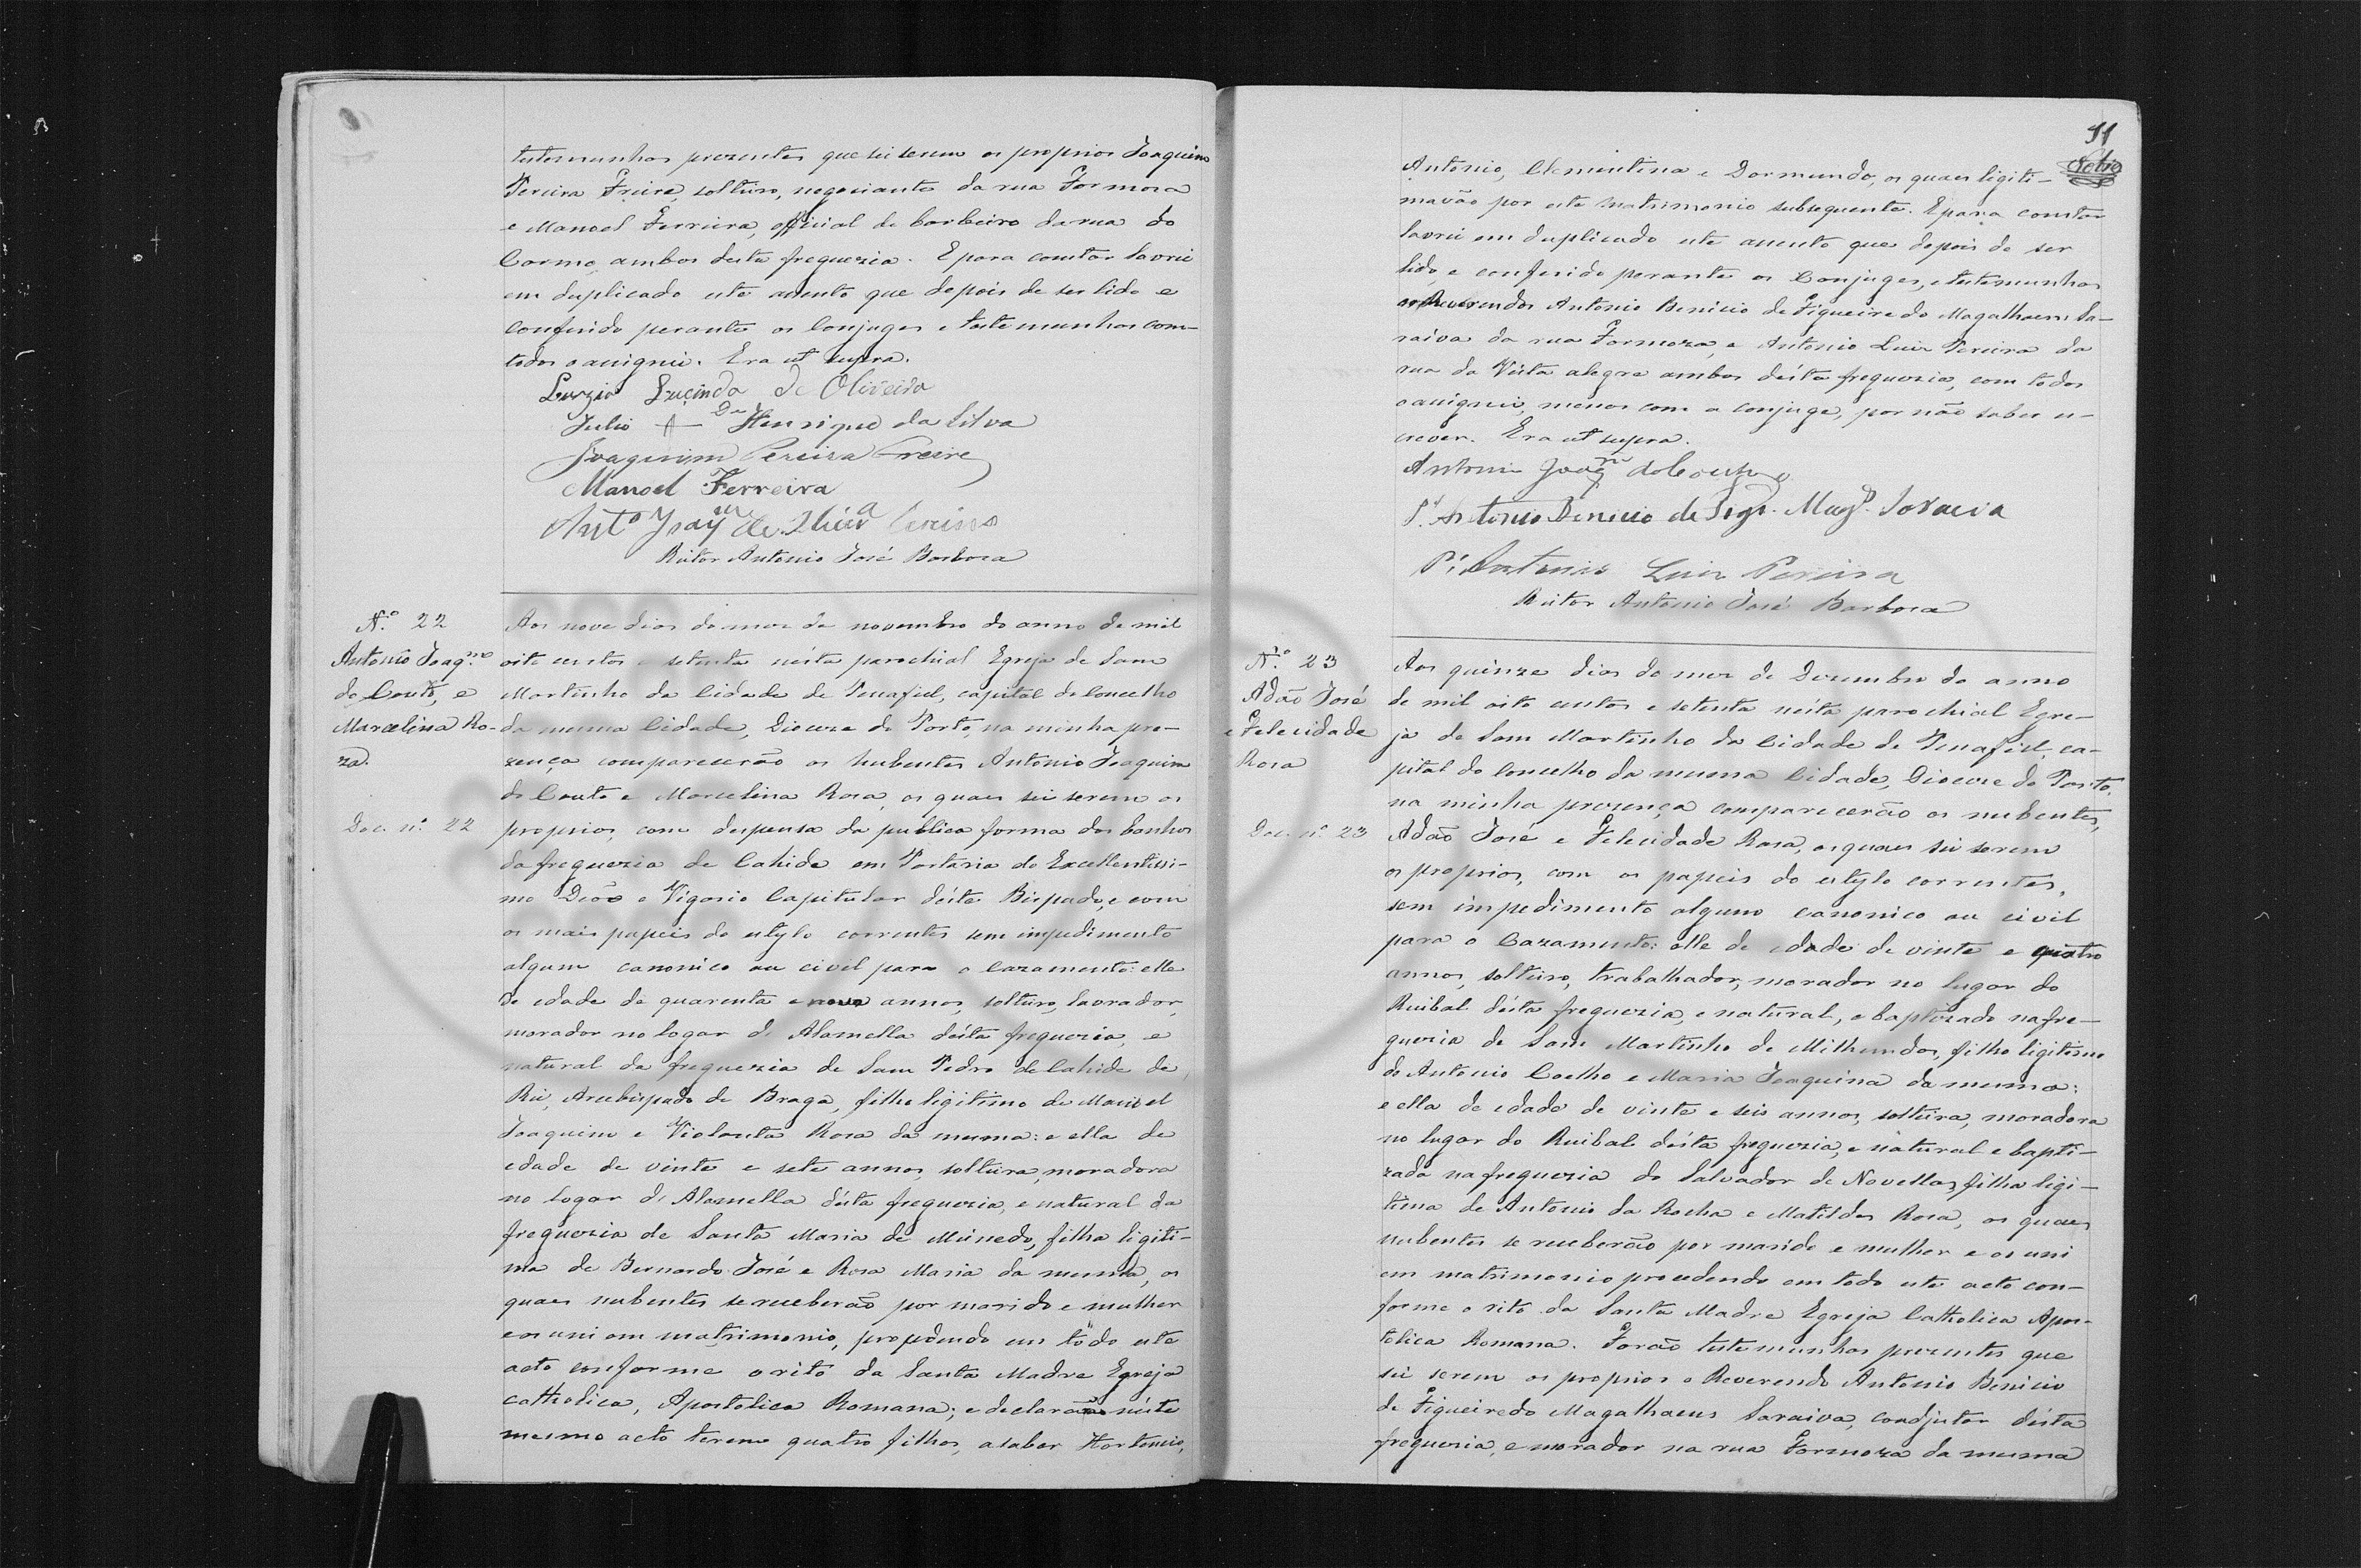 testemunhas prezentes que sei serem os proprios Joaquim
Pereira Freire, solteiro, negociante da rua Formosa
e Manoel Ferreira, official de barbeiro da rua do
Carmo, ambos desta freguezia. E para constar lavrei
em duplicado este assento que depois de ser lido e
conferido perante os Conjuges e testemunhas com
todos o assignei. Era ut supra.
Luzia Lucinda de Oliveira
Julio Henrique da Silva
Joaquim Pereira Freire
Manoel Ferreira
Antº Joaqm de
Reitor Antonio José Barbosa
N.º 22
Antonio Joaq.mo
do Couto, e
Marcelina Ro-
za.
Doc. n.º 22
Aos nove dias do mez de novembro do anno de mil
oito centos e setenta nésta parochial Egreja de Sam
Martinho da Cidade de Penafiel, capital do Concelho
da mesma Cidade, Diocese do Porto, na minha pre-
zença comparecerão os nubentes Antonio Joaquim
do Couto e Marcelina Rosa, os quaes sei serem os
proprios, com despensa da publica forma dos banhos
da freguezia de Cahide em Portaria do Excellentissi-
mo Deão e Vigario Capitular déste Bispado, e com
os mais papeis do estylo correntes sem impedimento
algum canonico ou civil para o cazamento: elle
de edade de quarenta e nove annos, solteiro, lavrador,
morador no logar d' Alamella désta freguezia, e
natural da freguezia de Sam Pedro de Cahide de
Rei, Arcebispado de Braga, filho legitimo de Manoel
Joaquim e Violanta Rosa da mesma: e ella de
edade de vinte e sete annos, solteira, moradora
no logar d' Alamella désta freguezia, e natural da
freguezia de Santa Maria de Meinedo, filha legiti-
ma de Bernardo José e Rosa Maria da mesma, os
quaes nubentes se receberaõ por marido e mulher
e os uni em matrimonio, procedendo em todo este
acto conforme o rito da Santa Madre Egreja
catholica, Apostolica Romana; e declararão néste
mesmo acto terem quatro filhos, a saber Hortencio,
11
Antonio, Clementina e Dormundo, os quaes legiti-
mavão por este matrimonio subsequente. E para constar
lavrei em duplicado este assento que depois de ser
lido e conferido perante os Conjuges, e testemunhas
os Reverendos Antonio Benicio de Figueiredo Magalhaens Sa-
raiva da rua Formoza, e Antonio Luiz Pereira da
rua da Vista alegre ambos désta freguezia, com todos
o assignei, menos com a conjuge, por não saber es-
crever. Era ut supra.
Antonio Joaqm do Couto
P.e Antonio Benicio de Figr.º Mag.es Saraiva
P.e Antonio Luiz Pereira
Reitor Antonio José Barbosa
N.º 23
Adão José
e Felecidade
Rosa
Doc. n.º 23
Aos quinze dias do mez de Dezembro do anno
de mil oito centos e setenta nésta parochial Egre-
ja de Sam Martinho da Cidade de Penafiel, ca-
pital do Concelho da mesma Cidade, Diocese do Porto,
na minha prezença comparecerão os nubentes,
Adão José e Felecidade Rosa, os quaes sei serem
os proprios, com os papeis do estylo correntes,
sem impedimento algum canonico ou civil
para o Cazamento: elle de edade de vinte e quatro
annos, solteiro, trabalhador, morador no lugar do
Ruibal désta freguezia, e natural, e baptizado na fre-
guezia de Sam Martinho de Milhundos, filho legitimo
de Antonio Coelho e Maria Joaquina da mesma:
e ella de edade de vinte e seis annos, solteira, moradora
no lugar do Ruibal désta freguezia, e natural e bapti-
zada na freguezia do Salvador de Novellas, filha legi-
tima de Antonio da Rocha e Matildes Rosa, os quaes
nubentes se receberão por marido e mulher e os uni
em matrimonio procedendo em todo este acto con-
forme o rito da Santa Madre Egreja Catholica Apos-
tolica Romana. Forão testemunhas prezentes que
sei serem os proprios o Reverendo Antonio Benicio
de Figueiredo Magalhaens Saraiva, coadjutor désta
freguezia, e morador na rua Formoza da mesma